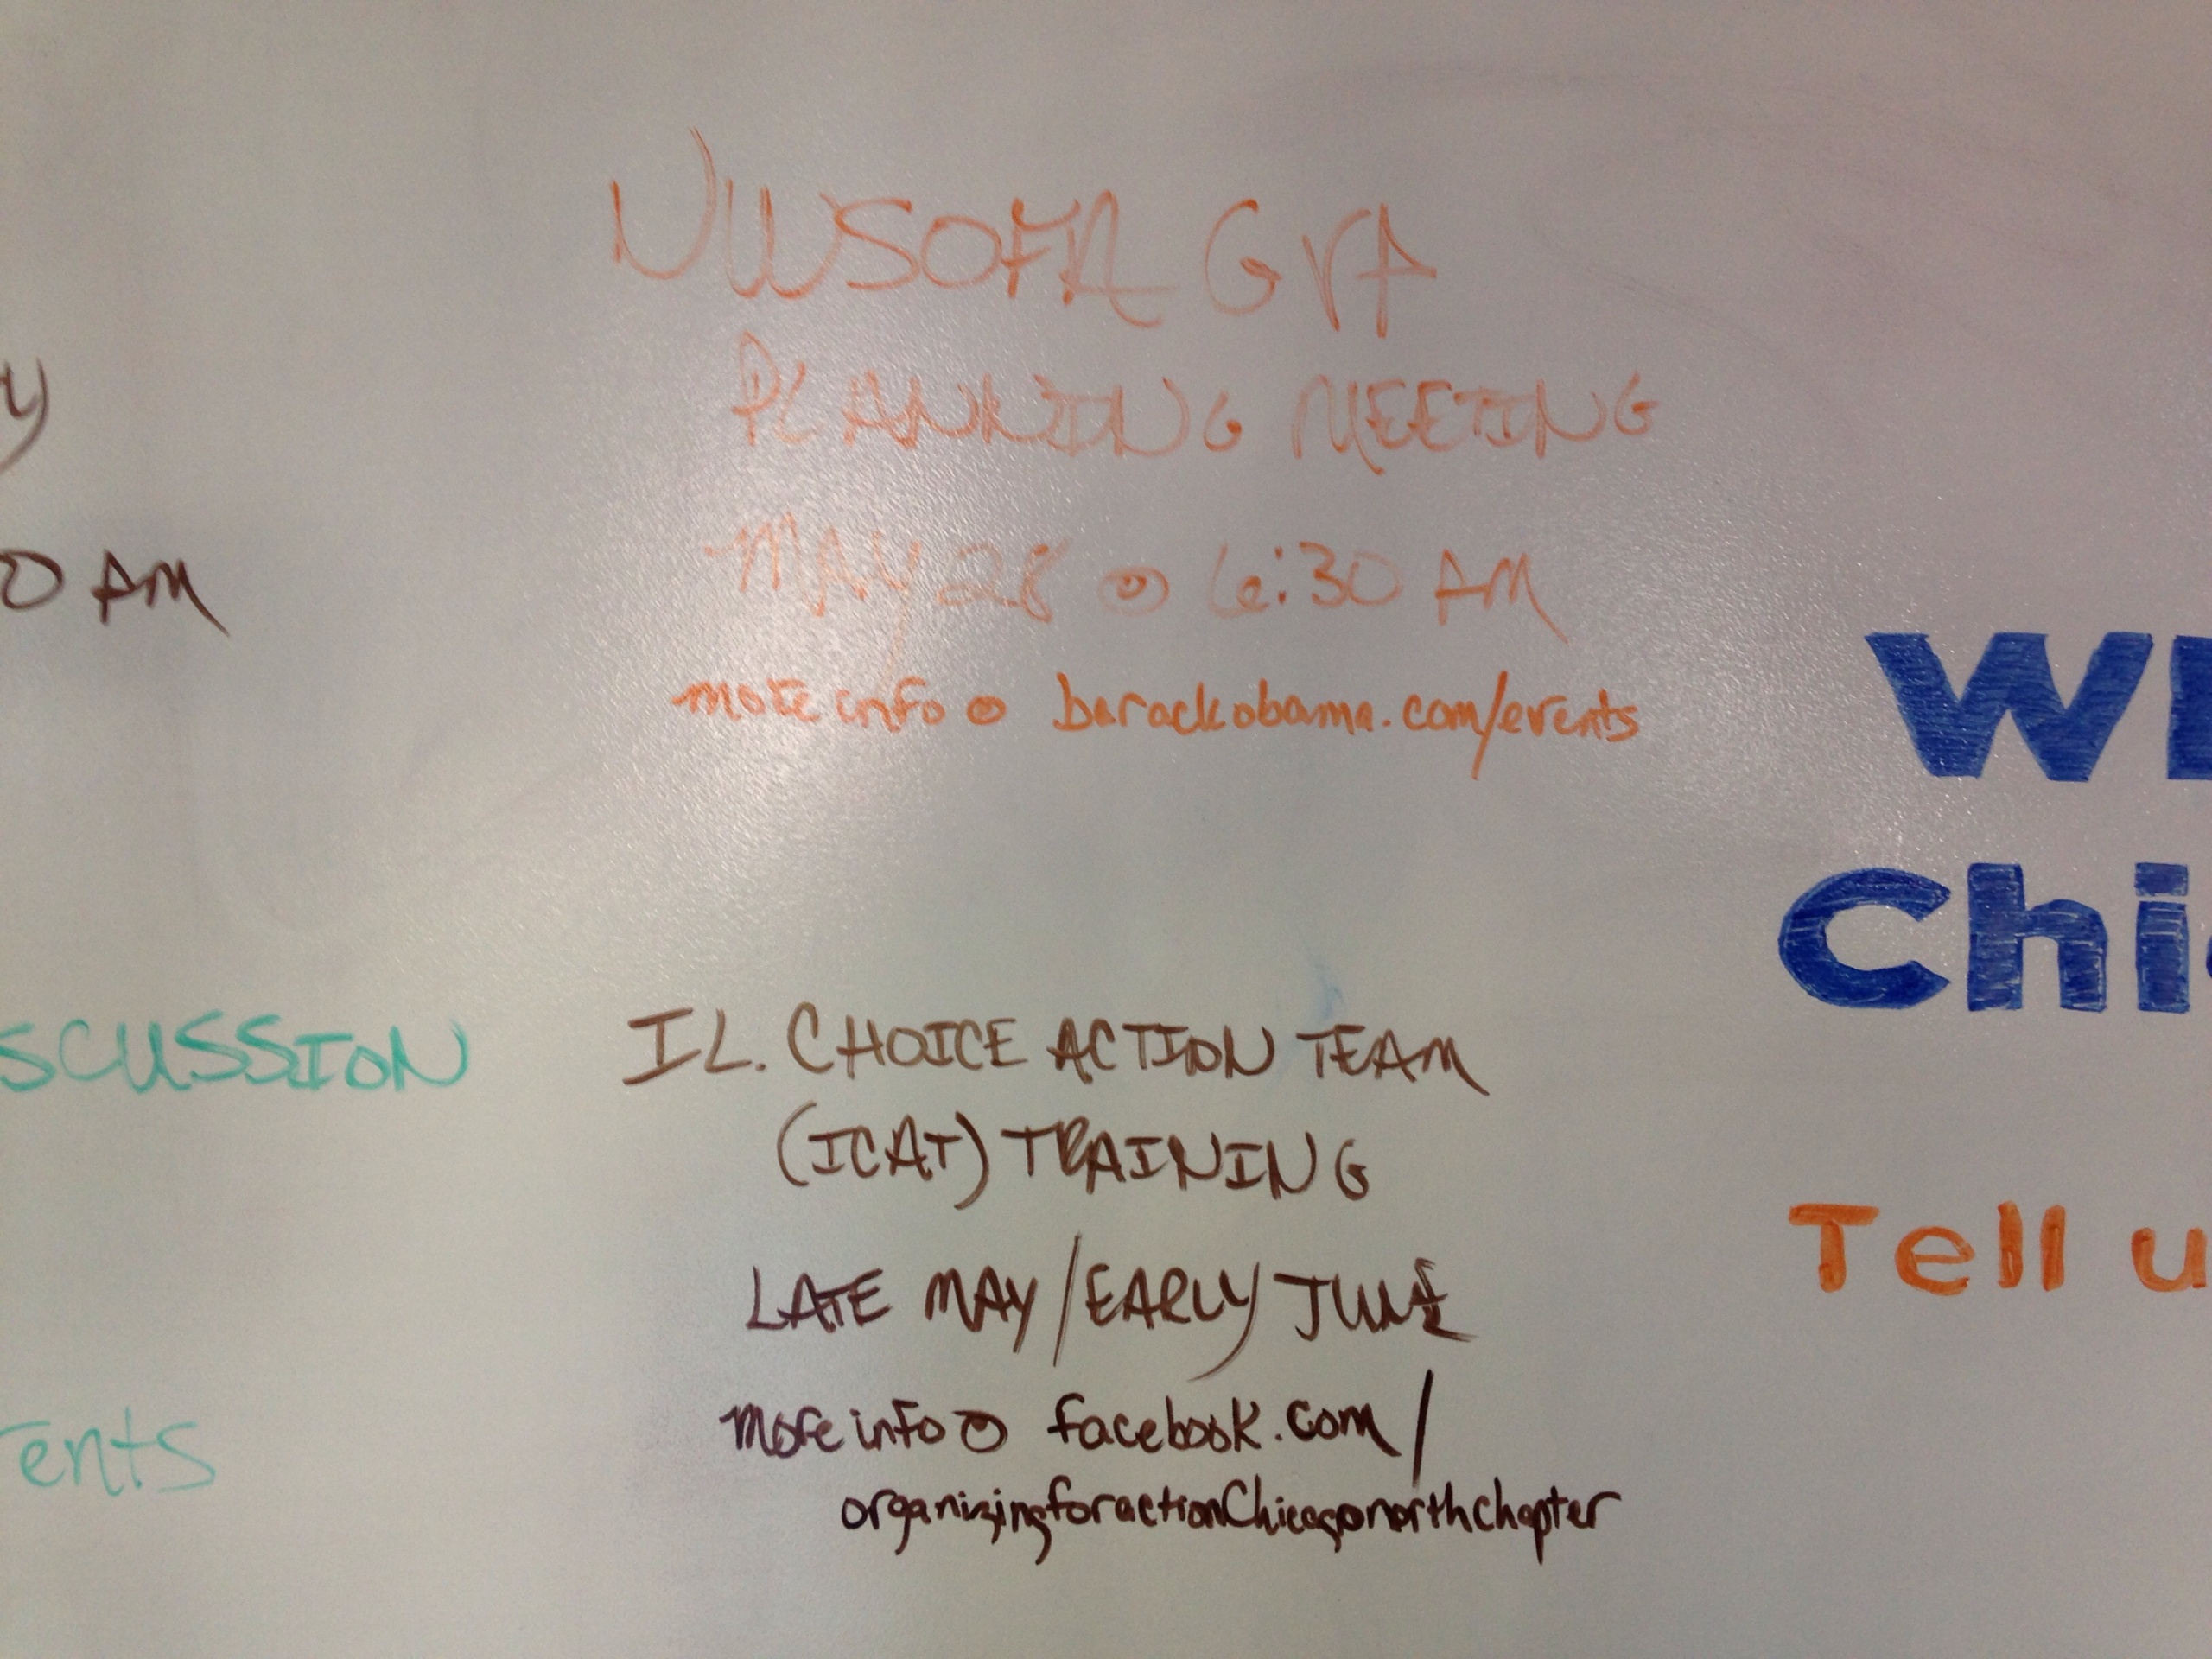 NWSOFA GVP
PLANNING MEETING
MAY 28 @ 6:30 AM
more info @ barackobama.com/events
IL. CHOICE ACTION TEAM
(ICAT) TRAINING
LATE MAY/EARLY JUNE
more info @ facebook.com/
organizingforactionChicagonorthchapter
y
0 AM
SCUSSION
ents
W
Chi
Tell u